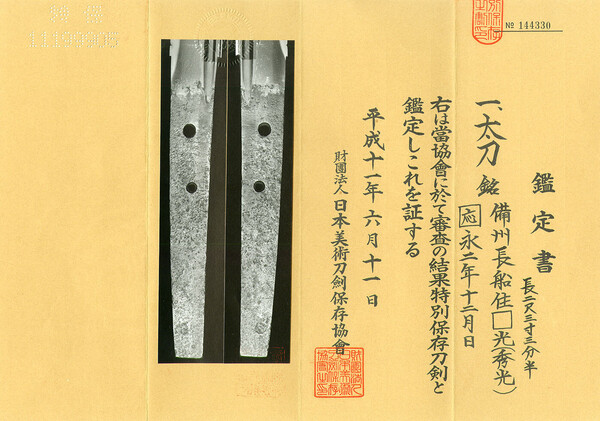 № 144330
鑑定書
長二尺三寸三分半
一、太刀 銘 備州長船住□光(秀光)
応永二年十二月日
右は當協會に於て審査の結果特別保存刀剣と
鑑定しこれを証する
平成十一年六月十一日
財團法人日本美術刀劍保存協會